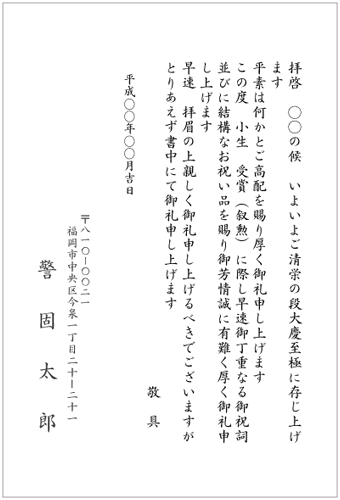 拝啓　〇〇の候　いよいよご清栄の段大慶至極に存じ上げ
ます
平素は何かとご高配を賜り厚く御礼申し上げます
この度　小生　受賞（叙勲）に際し早速御丁重なる御祝詞
並びに結構なお祝い品を賜り御芳情誠に有難く厚く御礼申
し上げます
早速　拝眉の上親しく御礼申し上げるべきでございますが
とりあえず書中にて御礼申し上げます
敬具
平成〇〇年〇〇月吉日
〒八一〇－〇〇二一
福岡市中央区今泉一丁目二十－二十一
警固太郎